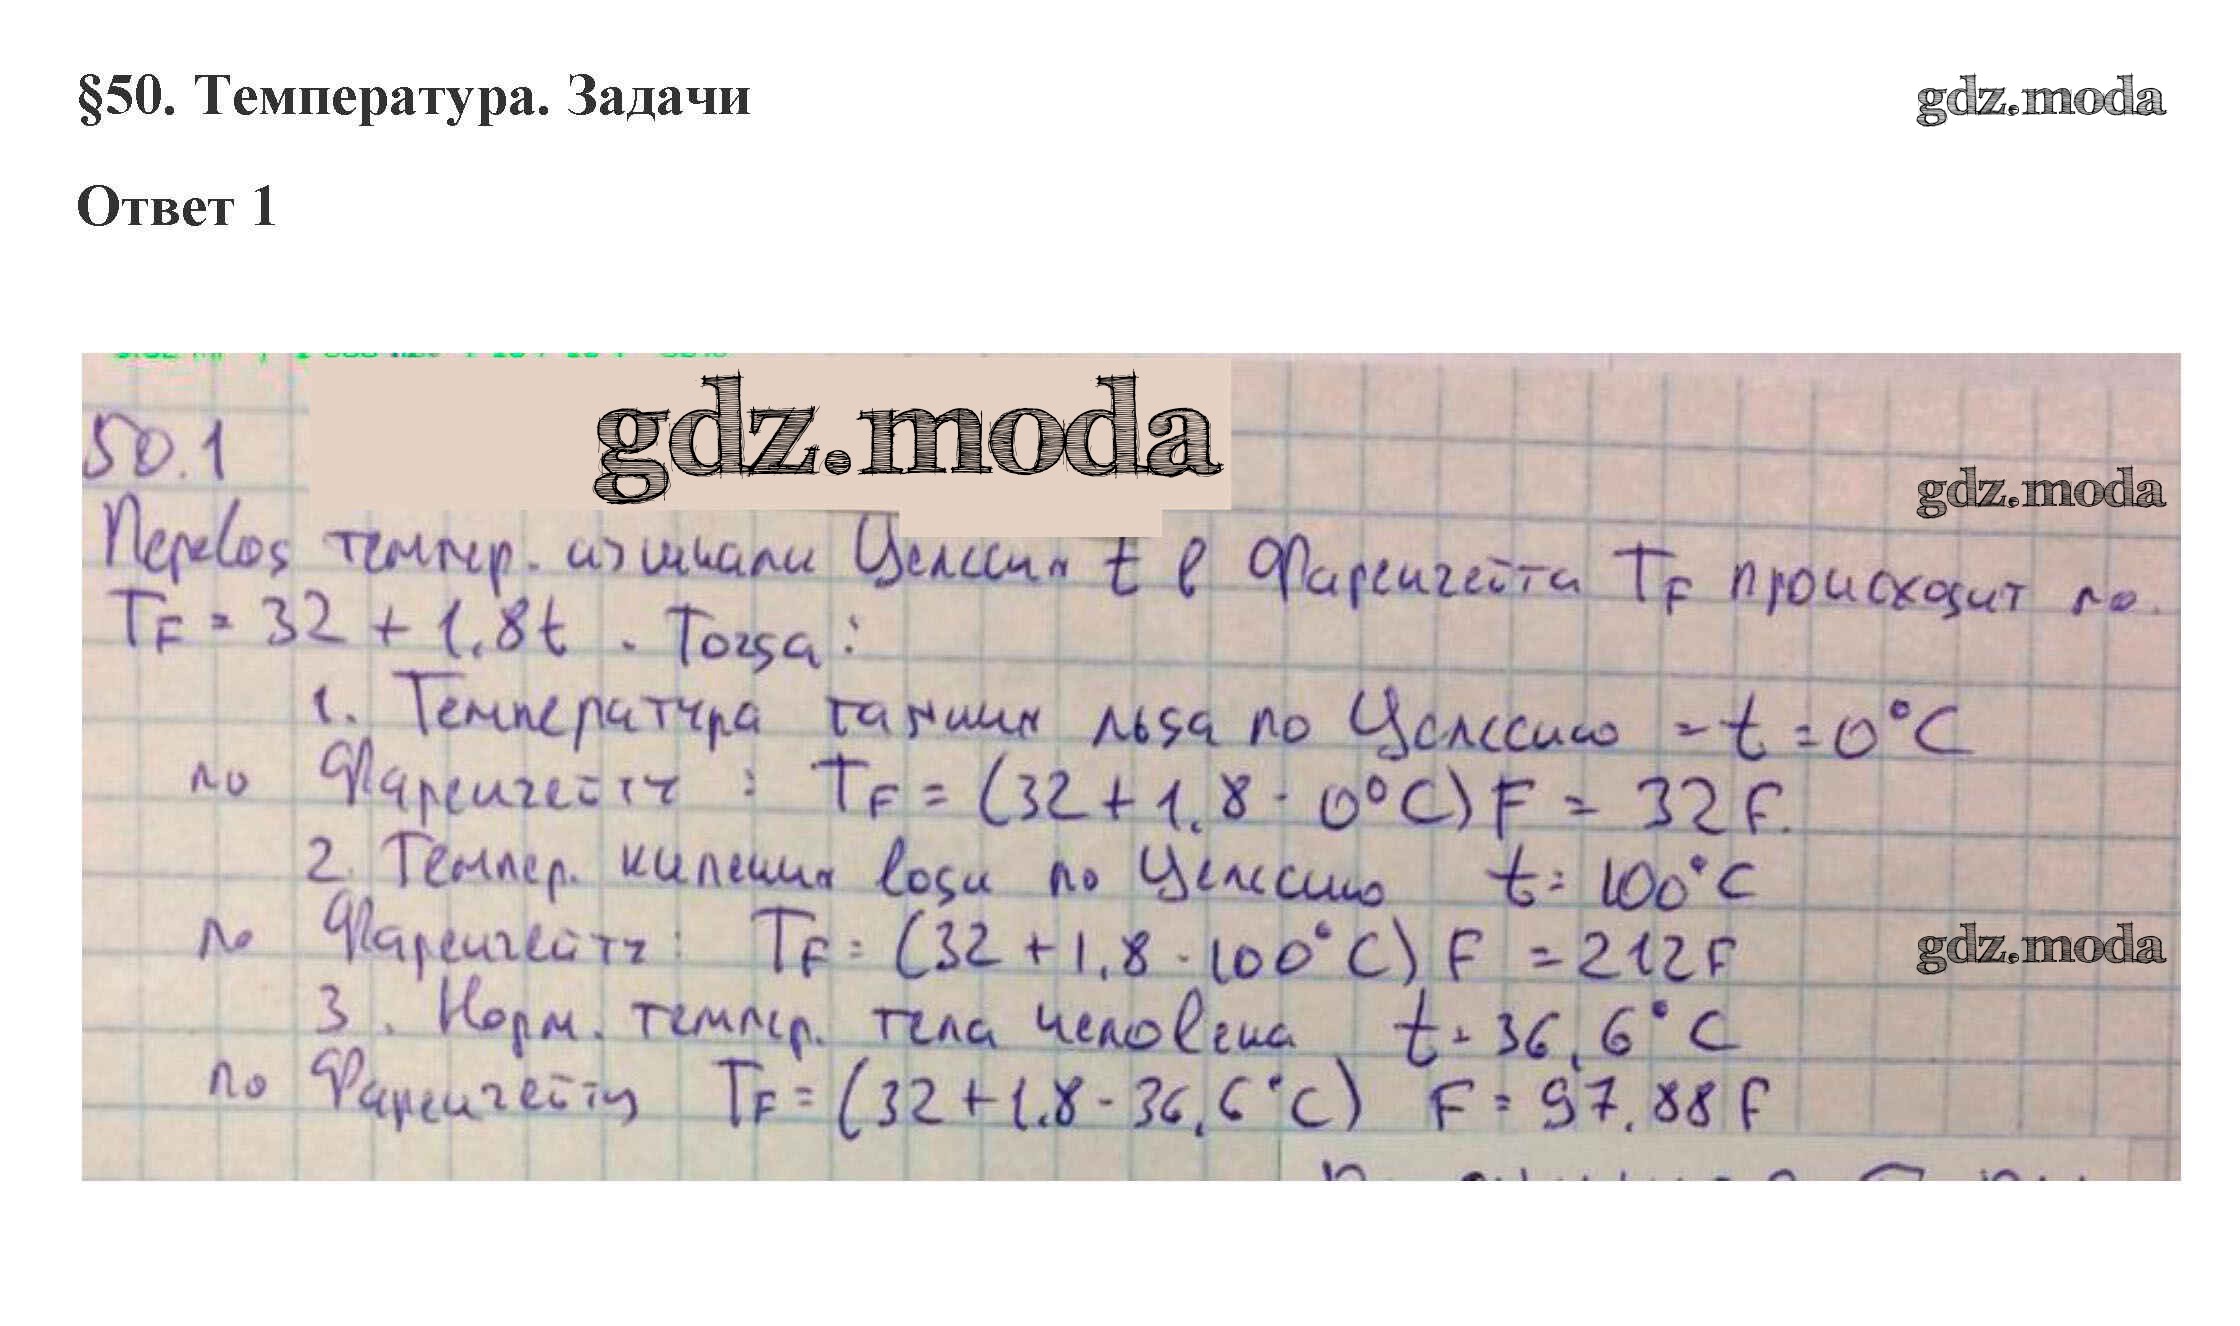 §50. Температура. Задачи
gdz.moda
Ответ 1
gdz.moda
50.1
gdz.moda
Перевод темпер. из шкалы Цельсия t в Фаренгейта TF происходит по
TF = 32 + 1.8t. Тогда:
1. Температура таяния льда по Цельсию - t = 0°C
по Фаренгейту: TF = (32 + 1.8 · 0°C) F = 32F.
2. Темпер. кипения воды по Цельсию t = 100°C
по Фаренгейту: TF = (32 + 1.8 · 100°C) F = 212F
gdz.moda
3. Норм. темпер. тела человека t = 36,6°C
по Фаренгейту TF = (32 + 1.8 · 36,6°C) F = 97.88F